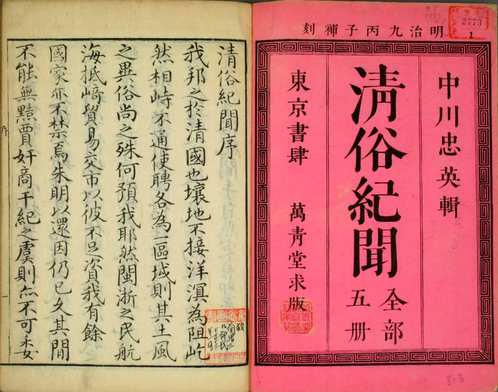 明治九丙子穐刻
中川忠英輯
清俗紀聞
全部
五册
東京書肆 萬青堂求版
2773
1
清俗紀聞序
我邦之於清國也壤地不接洋溟為阻屹
然相峙不通使聘各為一區域則其土風
之異俗尚之殊何預我耶然閩浙之民航
海抵﨑貿易交市以彼不足資我有餘
國家亦不禁焉朱明以還因仍已久其間
不能無黠賈奸商干紀之虞則亦不可